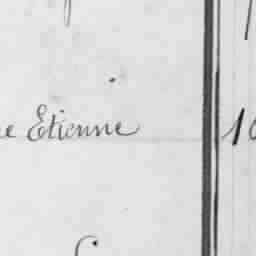 e Etienne 10